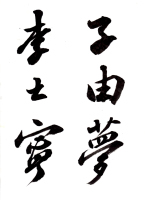 子由夢
李士寧